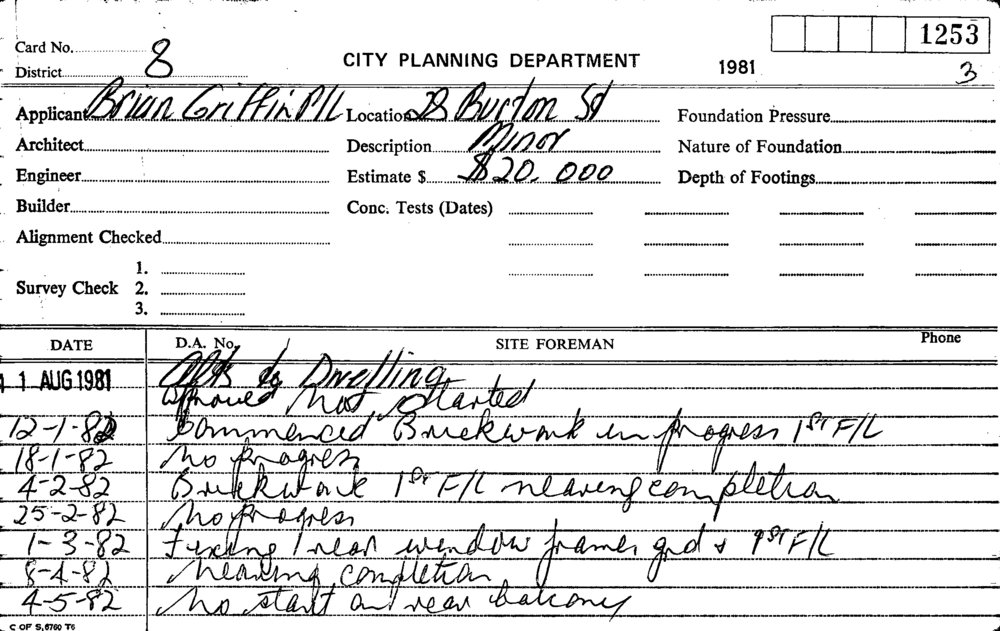 1253
Card No. 8
District
CITY PLANNING DEPARTMENT 1981 3
Applicant Brian Griffin P/L Location 28 Burton St Foundation Pressure
Architect Description Minor Nature of Foundation
Engineer Estimate $ $20.000 Depth of Footings
Builder Conc. Tests (Dates)
Alignment Checked
1.
Survey Check 2.
3.
DATE D.A. No. SITE FOREMAN Phone
11 AUG 1981 Alts to Dwelling
approved Not started
12-1-82 Commenced Brickwork in progress 1ST F/L
18-1-82 No progress
4-2-82 Brickwork 1ST F/L nearing completion
25-2-82 No progress
1-3-82 Fixing rear window frames grd & 1ST F/L
8-4-82 Nearing completion
4-5-82 No start on rear balcony
C OF S, 6760 T6